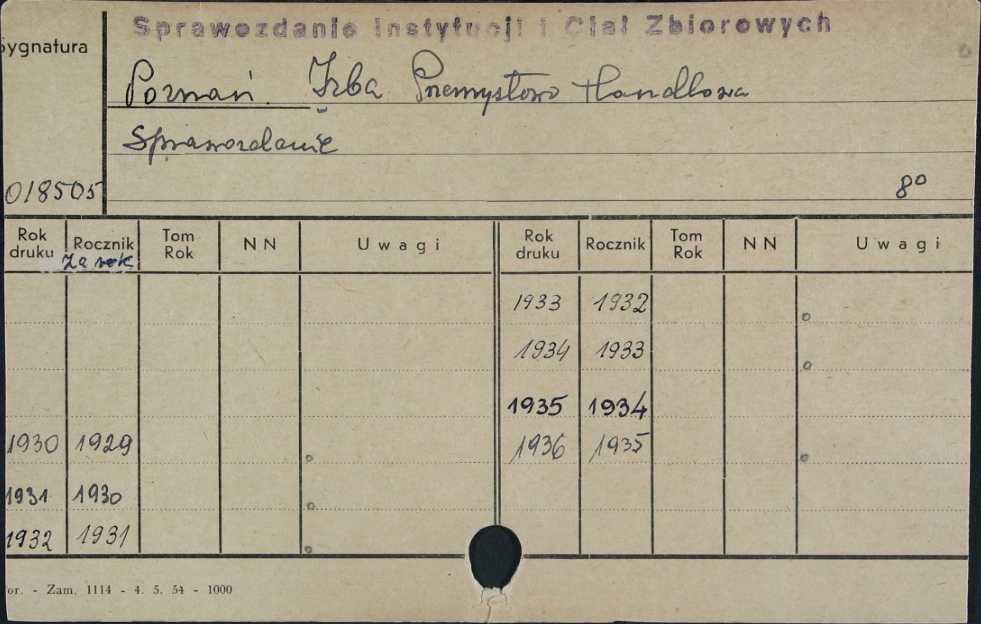 Sprawozdanie Instytucji i Ciał Zbiorowych
Sygnatura
Poznań. Izba Przemysłowo Handlowa
Sprawozdanie
018505
8º
Rok druku Rocznik Tom Rok N N U w a g i Rok druku Rocznik Tom Rok N N U w a g i
za rok
1933 1932
1934 1933
1935 1934
1930 1929 1936 1935
1931 1930
1932 1931
or. - Zam. 1114 - 4. 5. 54 - 1000